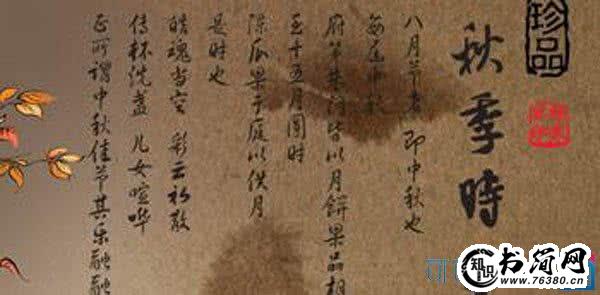 珍品
秋季時
八月节者 即中秋也
每届中秋
府第朱门皆以月餅果品相
至十五月圆时
陈瓜果于庭以供月
是时也
皓魂当空 彩云初散
传杯洗盏 儿女喧哗
正所谓中秋佳节其乐融融
知识
书简网
www.76380.cn